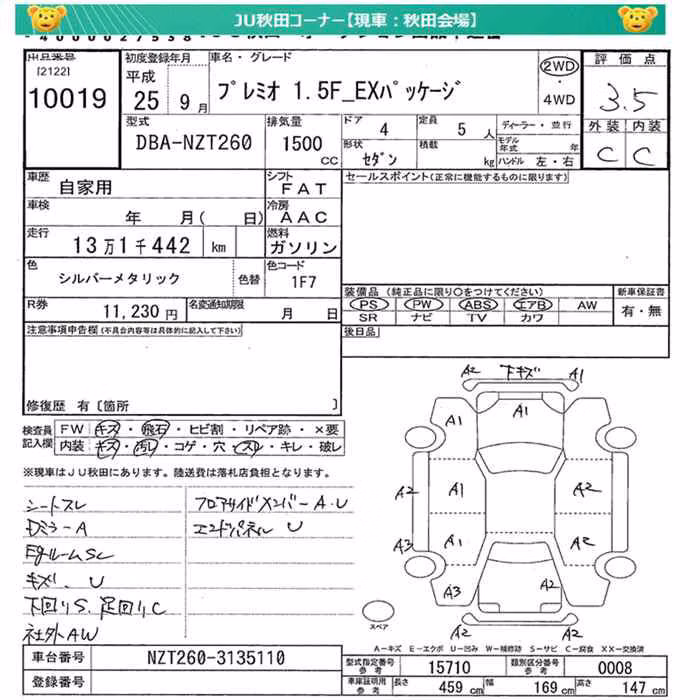 JU秋田コーナー【現車：秋田会場】
出品番号
[2122]
10019
初度登録年月
平成
25 9月
車名・グレード
プレミオ 1.5F_EXパッケージ
2WD
・
4WD
評価点
3.5
外装 内装
C C
型式
DBA-NZT260
排気量
1500
CC
ドア 4
定員 5 人
ディーラー・並行
形状 セダン
積載 kg
モデル年式 年
ハンドル 左・右
車歴 自家用
シフト FAT
セールスポイント(正常に機能するものに限ります)
車検 年 月( 日)
冷房 AAC
走行 13万1千442 km
燃料 ガソリン
色 シルバーメタリック 色替
色コード 1F7
R券 11,230円
名変通知期限 月 日
装備品 (純正品に限り○をつけてください)
PS PW ABS エアB AW
SR ナビ TV カワ
新車保証書
有・無
後日品
注意事項申告欄(不具合内容等は具体的に記入して下さい)
修復歴 有〔箇所 〕
検査員記入欄
FW キズ・飛石・ヒビ割・リペア跡・×要
内装 キズ・汚レ・コゲ・穴・スレ・キレ・破レ
※現車はＪＵ秋田にあります。陸送費は落札店負担となります。
シートスレ
Dミラ-A
EgルームSC
キズ、U
下回りS.足回りC
社外AW
フロアサイドメンバーA・U
エンドパネル U
A2 下キズ A1
A1 A1
A2 A1 A2
A3 A1 A2
A3 A2
A2 A2
スペア
A－キズ E－エクボ U－凹み W－補修跡 S－サビ C－腐食 XX－交換済
車台番号 NZT260-3135110
登録番号
型式指定番号参考 15710
類別区分番号参考 0008
車庫証明用参考 長さ 459 cm 幅 169 cm 高さ 147 cm